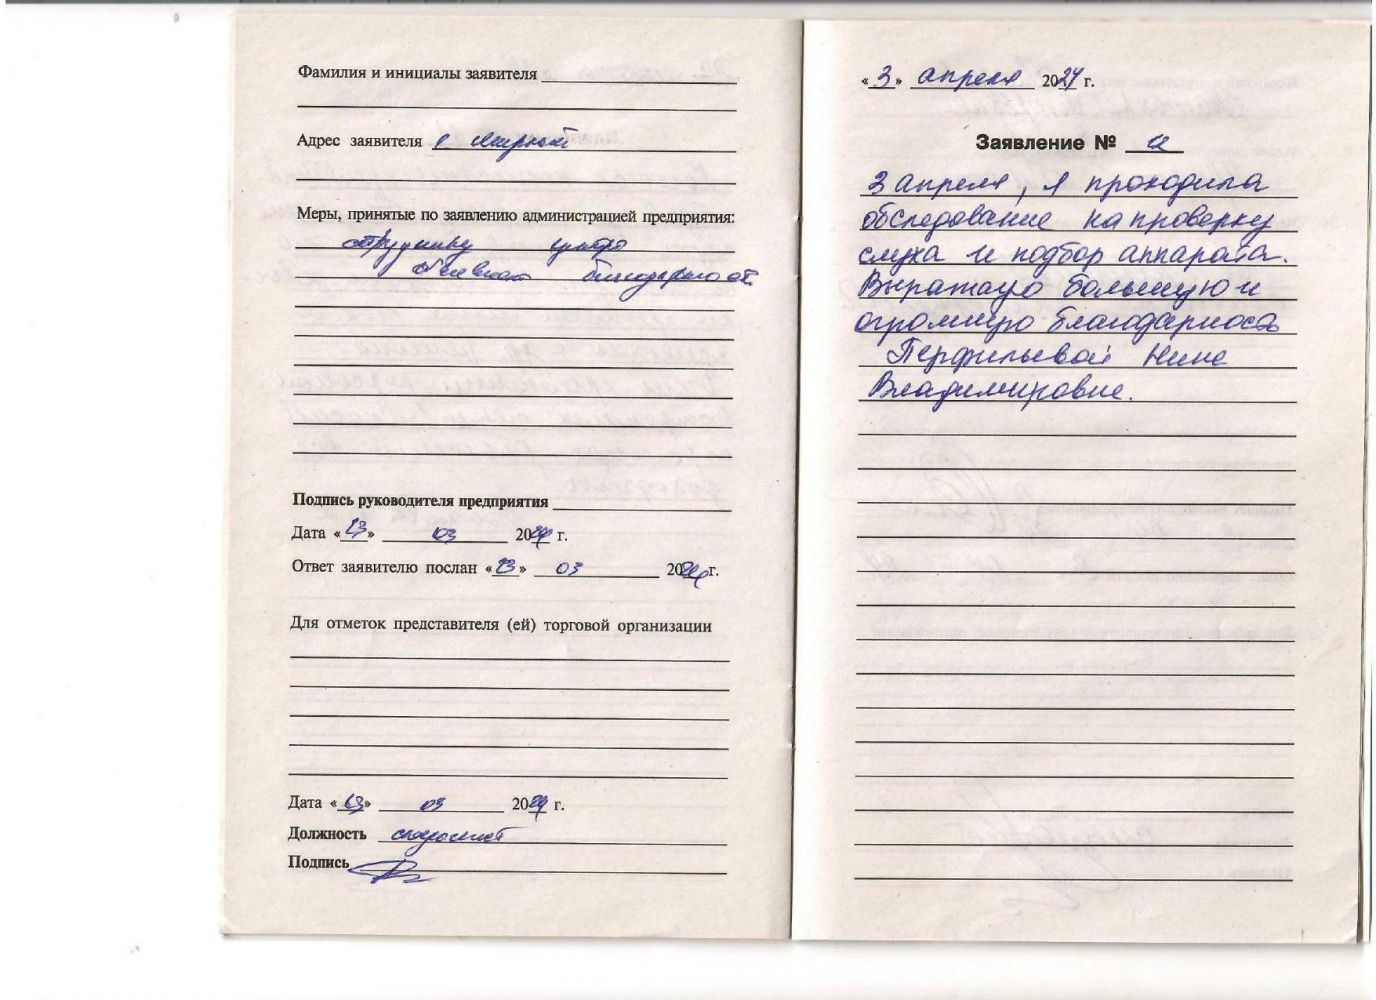 Фамилия и инициалы заявителя
Адрес заявителя г Мирный
Меры, принятые по заявлению администрацией предприятия:
сотруднику центра
объявлена благодарность
Подпись руководителя предприятия
Дата «13» 03 2024 г.
Ответ заявителю послан «13» 03 2024 г.
Для отметок представителя (ей) торговой организации
Дата «13» 03 2024 г.
Должность
Подпись
«3» апреля 2024 г.
Заявление №
3 апреля, я проходила
обследование на проверку
слуха и подбор аппарата.
Выражаю большую и
огромную благодарность
Перфильевой Нине
Владимировне.